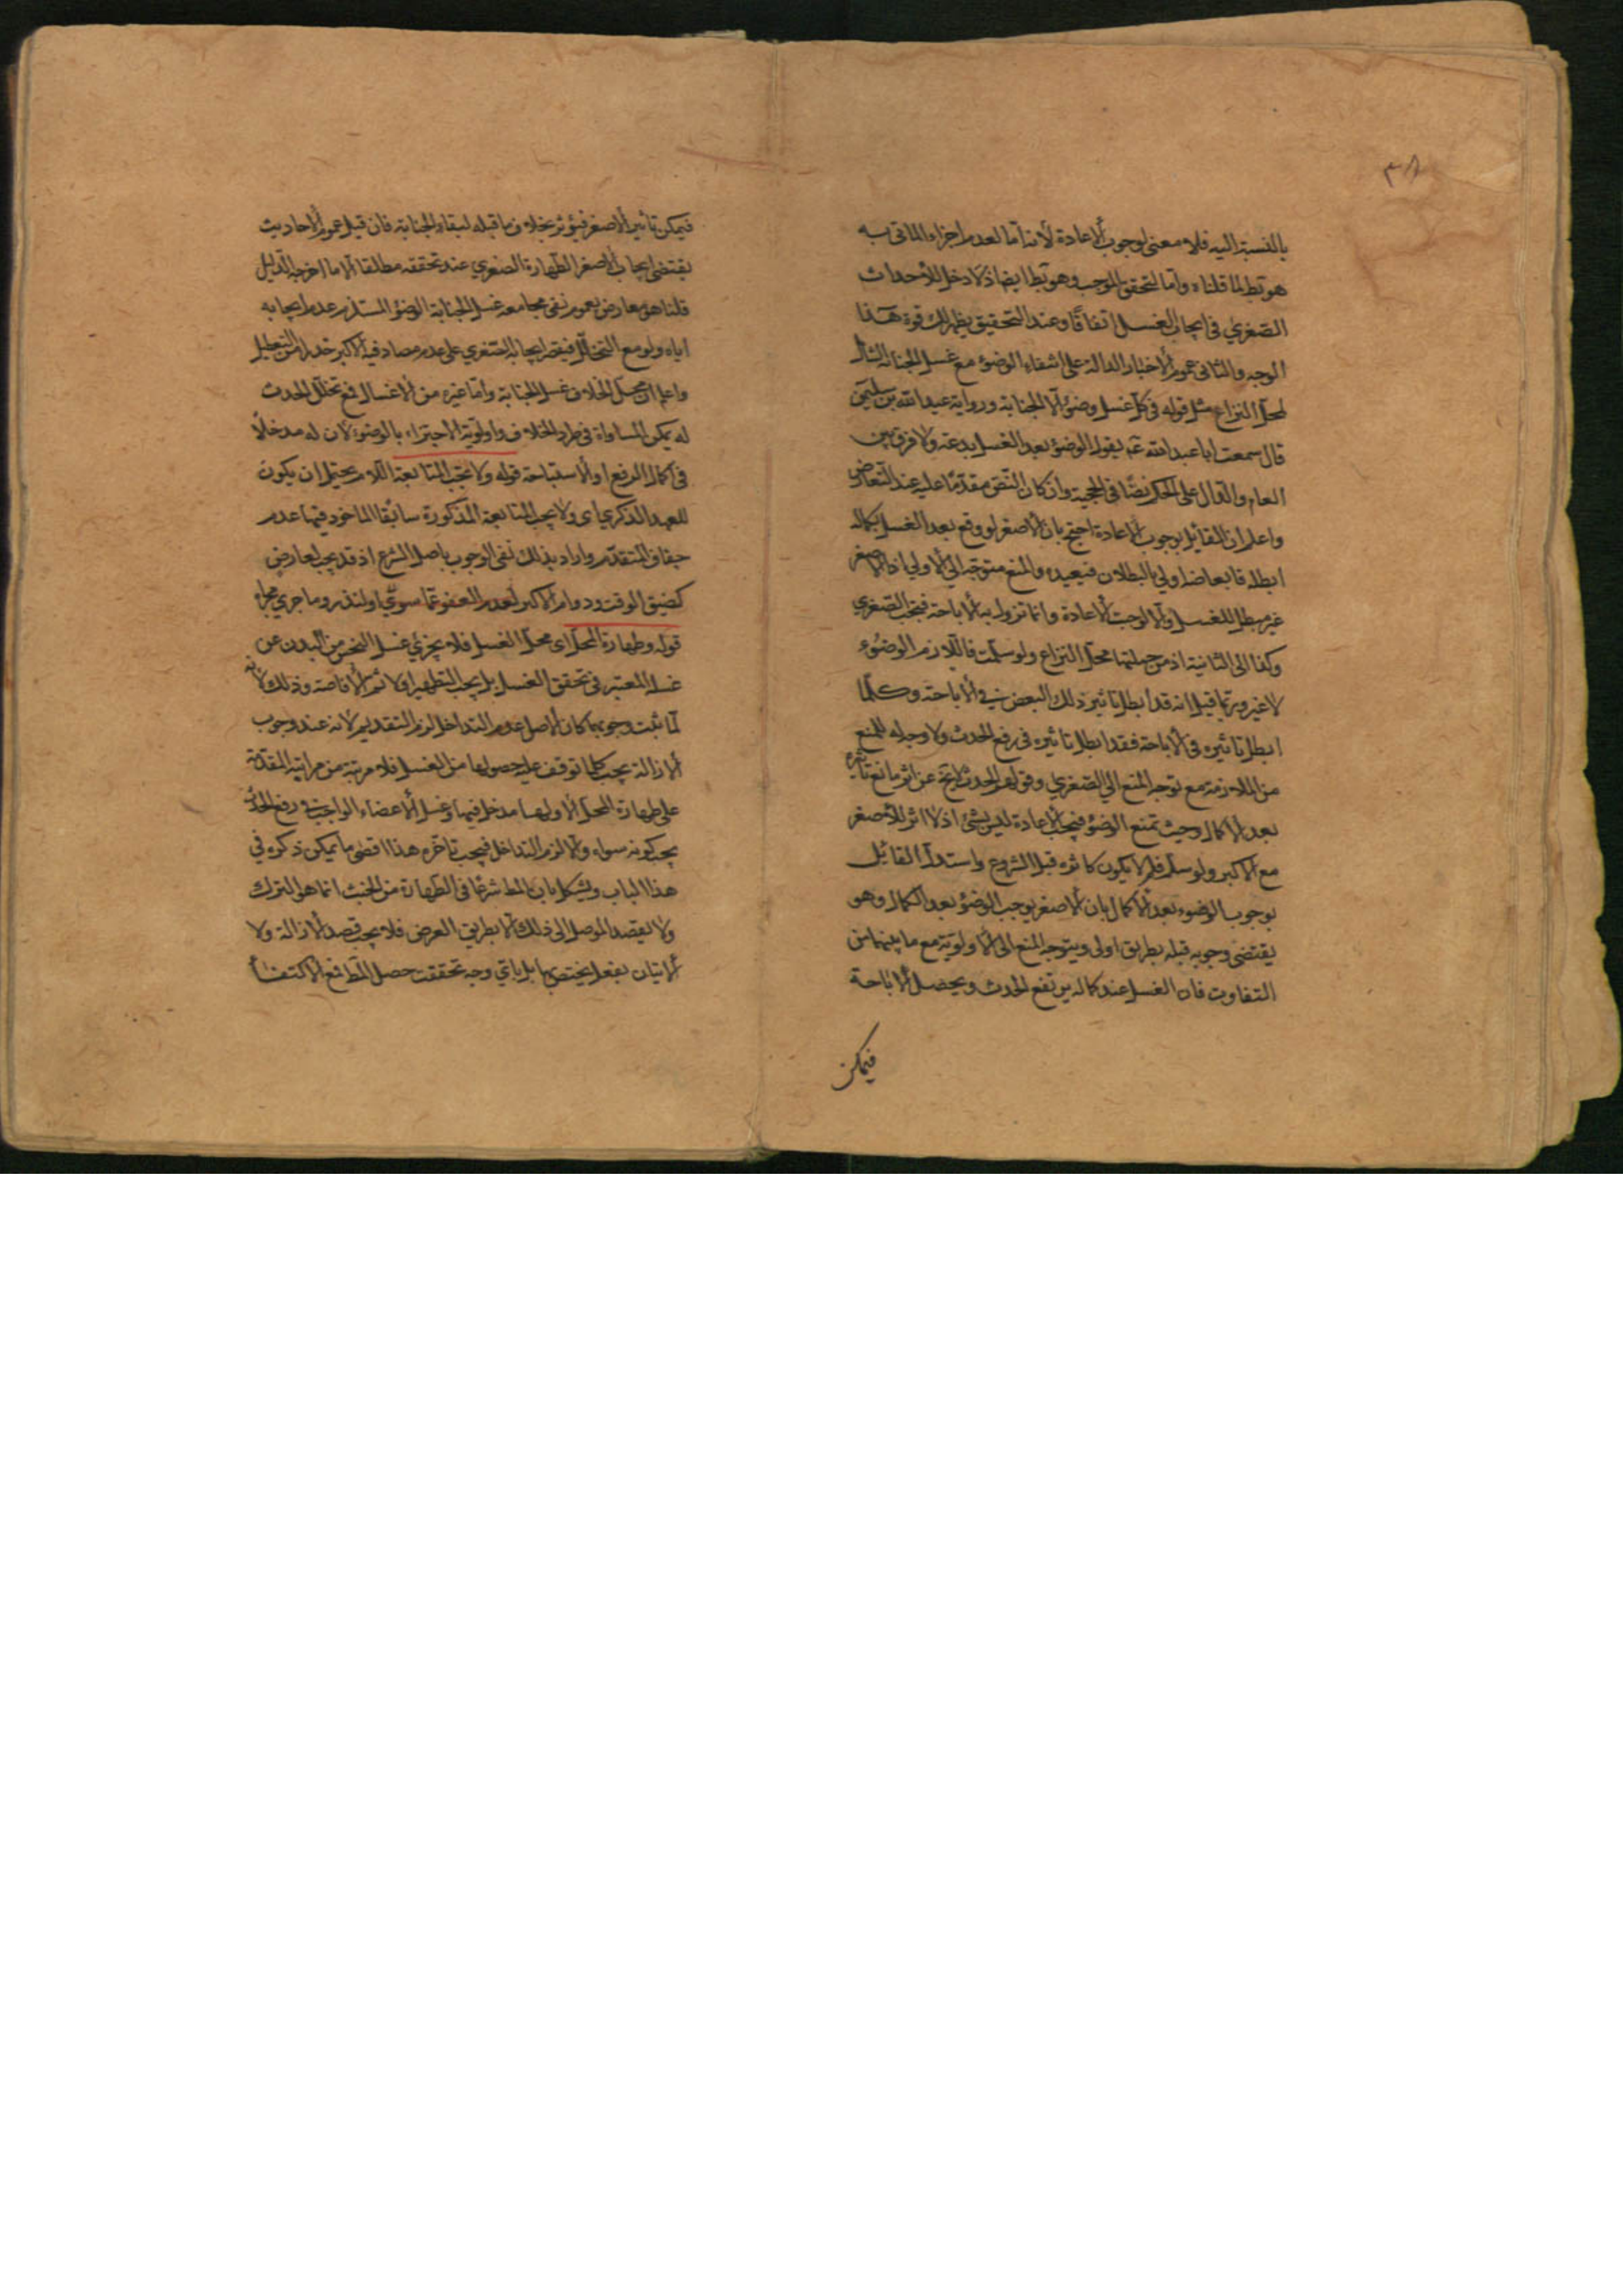 ٣٨
بالنسبة اليه فلا معنى لوجوب الاعادة لانه اما لعدم اجزاء الماتى به
هو بط لما قلناه واما لتحقق الموجب وهو بط ايضا اذ لا دخل للأحداث
الصغري في ايجاب الغسل اتفاقا وعند التحقيق يظهر لك قوة هذا
الوجه والثانى عموم الاخبار الدالة على انتفاء الوضوء مع غسل الجنابة الشامل
لمحل النزاع مثل قوله في كل غسل وضوء الا الجنابة ورواية عبد الله بن سليمن
قال سمعت ابا عبد الله عم يقول الوضوء بعد الغسل بدعة ولا فرق بين
العام والدال على الحكم نصا في الحجية وان كان النص مقدما عليه عند التعارض
واعلم ان القائل بوجوب الاعادة احتج بان الاصغر لو وقع بعد الغسل بكماله
ابطله فابعاضه اولى بالبطلان فيعيده والمنع متوجه الى الاولى اذ الاصغر
غير مبطل للغسل والا لوجبت الاعادة وانما تزول به الاباحة فتجب الصغري
وكذا الى الثانية اذ من جملتها محل النزاع ولو سلمت فاللازم الوضوء
لا غير وربما قيل انه قد ابطل تاثير ذلك البعض في الاباحة وكلما
ابطل تاثيره في الاباحة فقد ابطل تاثيره في رفع الحدث ولا وجه له للمنع
من الملازمة مع توجه المنع الي الصغري وقولهم الحدث عن اثر مانع تاثيره
بعد الاكمال وحيث تمنع الوضوء فيجب الاعادة ليس بشئ اذ لا اثر للأصغر
مع الاكبر ولو سلم فلم لا يكون كاثره قبل الشروع واستدل القائل
بوجوب الوضوء بعد الاكمال بان الاصغر يوجب الوضوء بعد الكمال وهو
يقتضى وجوبه قبله بطريق اولى ويتوجه المنع الى الاولوية مع ما بينهما من
التفاوت فان الغسل عند كماله يرتفع الحدث ويحصل الاباحة
فيمكن
فيمكن تاثير الاصغر فيؤثر بخلاف ما قبله لبقاء الجنابة فان قيل عموم الاحاديث
يقتضى ايجاب الاصغر الطهارة الصغري عند تحققه مطلقا الا ما اخرجه الدليل
قلنا هو معارض بعموم نفى مجامعة غسل الجنابة الوضوء المستلزم عدم ايجابه
اياه ولو مع التخلل فيقصر ايجابه الصغري على عدم مصادفة الاكبر حذرا من التعطيل
واعلم ان محل الخلاف غسل الجنابة واما غيره من الاغسال فمع تخلل الحدث
له يمكن المساواة في طرد الخلاف واولوية الاجتزاء بالوضوء لان له مدخلا
في اكمال الرفع او الاستباحة قوله ولا تجب المتابعة اللام يحتمل ان يكون
للعهد الذكري اى ولا يجب المتابعة المذكورة سابقا الماخوذ فيها عدم
جفاف المتقدم واراد بذلك نفى الوجوب باصل الشرع اذ قد يجب لعارض
كضيق الوقت ودوام الاكبر لعدم العفو عما سوي او لنذر وما جري مجراه
قوله وطهارة المحل اى محل الغسل فلا يجزئ غسل النجس من البدن عن
غسله المعتبر في تحقق الغسل بل يجب التطهير اولا ثم الافاضة وذلك لانه
لما ثبت وجوبها كان الاصل عدم التداخل لزم التقديم لانه عند وجوب
الازالة يجب كلما توقف عليه حصولها من الغسل فلا مرتبة من مراتبه المقدمة
على طهارة المحل الا ولها مدخل فيها وغسل الاعضاء الواجب في رفع الحدث
يجب كونه سواه والا لزم التداخل فيجب تاخره هذا اقصى ما يمكن ذكره في
هذا الباب ويشكل بان المط شرعا في الطهارة من الخبث انما هو الترك
ولا يقصد الموصل الى ذلك الا بطريق العرض فلا يجب قصد الازالة ولا
الاتيان بفعل يختص بها بل باي وجه تحققت حصل المط فمع الاكتفاء